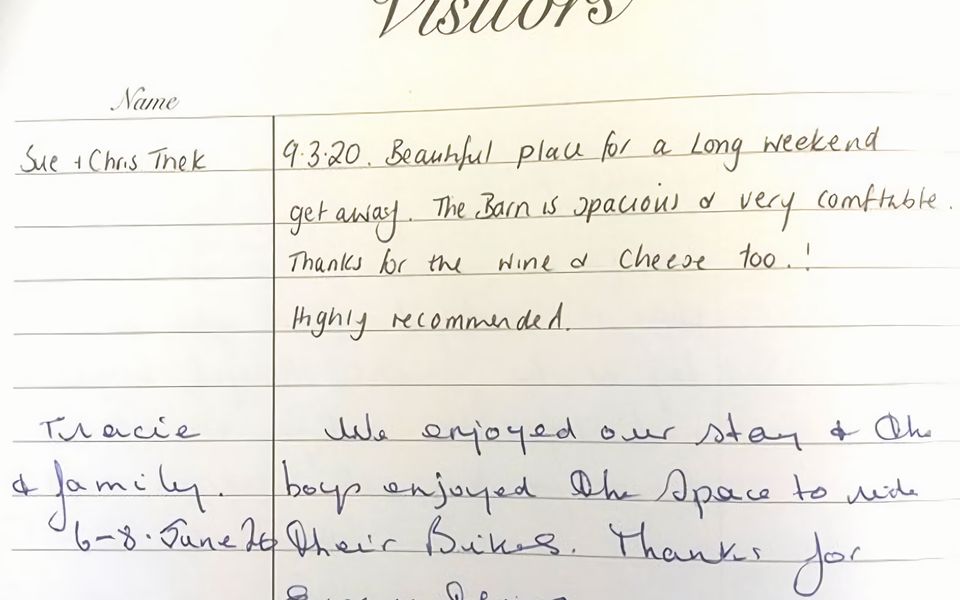 Visitors
Name
Sue + Chris Trek 9.3.20. Beautiful place for a Long weekend
get away. The Barn is spacious & very comftable.
Thanks for the wine & cheese too.!
Highly recommended.
Tracie We enjoyed our stay & the
& family. boys enjoyed the space to ride
6-8. June 20 their Bikes. Thanks for